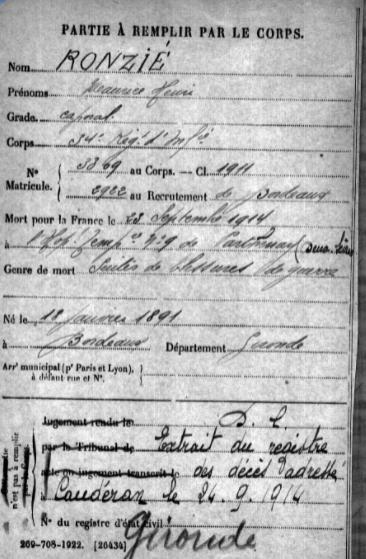 PARTIE À REMPLIR PAR LE CORPS.
Nom RONZIÉ
Prénoms Maurice Henri
Grade caporal
Corps 34e Rég. d'Inf ie
N° 5369 au Corps. — Cl. 1911
Matricule. 2922 au Recrutement de Bordeaux
Mort pour la France le 22 Septembre 1914
à l'Hop. Temp re N°9 de Parthenay (Deux-Sèvres
Genre de mort Suites de blessures de guerre
Né le 18 Janvier 1891
à Bordeaux Département Gironde
Arr t municipal (p r Paris et Lyon),
à défaut rue et N°.
Jugement rendu le D. C.
par le Tribunal de Extrait du registre
acte ou jugement transcrit le des décès adressé
à Caudéran le 24.9.1914
N° du registre d'état civil
Gironde
269-708-1922. [26434]
n'est pas à remplir